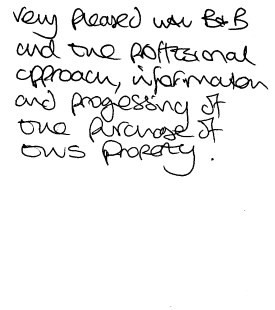 very pleased with B&B
and the professional
approach, information
and progessing of
the purchase of
this property.